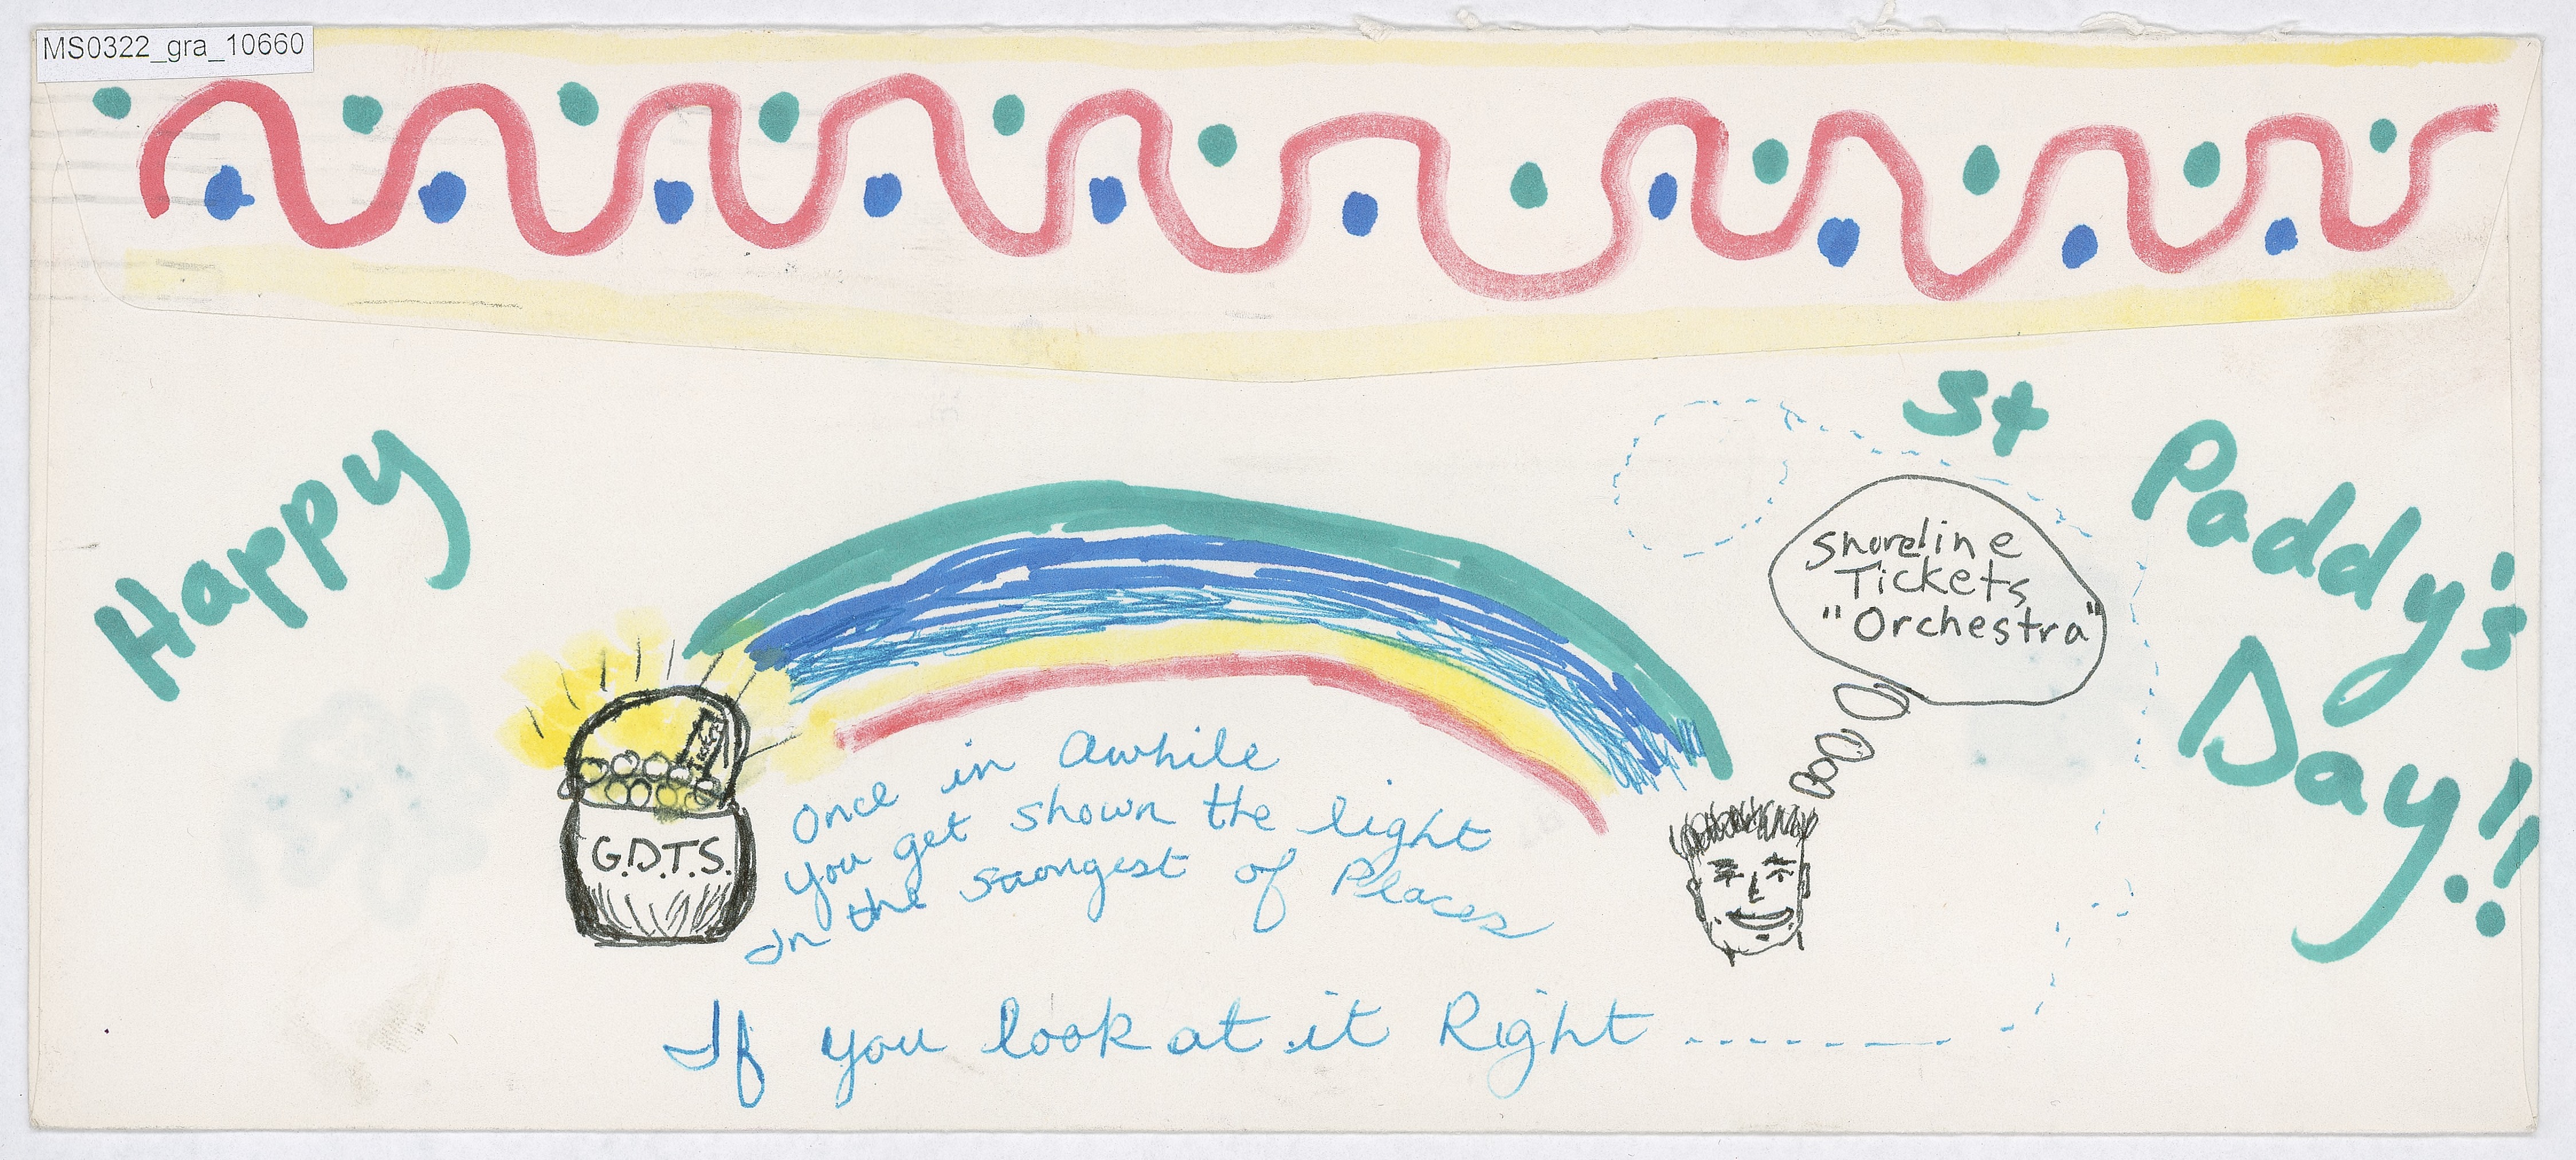 MS0322_gra_10660
Happy
St
Paddy's
Day!!
Shoreline
Tickets
"Orchestra"
Tickets
G.D.T.S.
Once in awhile
You get shown the light
In the straongest of Places
If you look at it Right ........